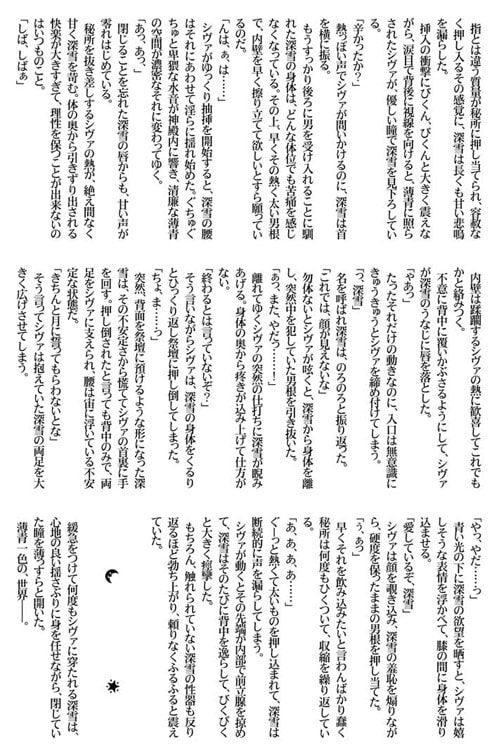 指とは違う質量が秘所に押し当てられ、容赦な
く押し入るその感覚に、深雪は長くも甘い悲鳴
を漏らした。
挿入の衝撃にびくん、びくんと大きく震えな
がら、涙目で背後に視線を向けると、薄青に照ら
されたシヴァが、優しい瞳で深雪を見下ろしてい
た。
「辛かったか?」
熱っぽい声でシヴァが問いかけるのに、深雪は首
を横に振る。
もうすっかり後ろに男を受け入れることに馴
れた深雪の身体は、どんな体位でも苦痛を感じ
なくなっている。その上、早くその熱く太い男根
で、内壁を早く擦り立てて欲しいとすら願ってい
るのだ。
「んはぁ、ぁ、は……」
シヴァがゆっくり抽挿を開始すると、深雪の腰
はそれにあわせて淫らに揺れ始めた。ぐちゅぐ
ちゅと卑猥な水音が神殿内に響き、清廉な薄青
の空間が濃密なそれに変わってゆく。
「あっ、あっ、」
閉じることを忘れた深雪の唇からも、甘い声が
零れはじめている。
秘所を抜き差しするシヴァの熱が、絶え間なく
甘く深雪を苛む。体の奥から引きずり出される
快楽が大きすぎて、理性を保つことが出来ないの
はいつものこと。
「しば、しばぁ」
内壁は蹂躙するシヴァの熱に歓喜してこれでも
かと絡みつく。
不意に背中に覆いかぶさるようにして、シヴァ
が深雪のうなじに唇を落とした。
「ゃあっ」
たったそれだけの動きなのに、入口は無意識に
きゅうきゅうとシヴァを締め付けてしまう。
「っ、深雪」
名を呼ばれ深雪は、のろのろと振り返った。
「これでは、顔が見えないな」
勿体ないとシヴァが呟くと、深雪から身体を離
し、突然中を犯していた男根を引き抜いた。
「あっ、また、やだっ……」
離れてゆくシヴァの突然の仕打ちに深雪が睨み
あげる。身体の奥から疼きが込み上げて仕方が
ない。
「終わるとは言っていないぞ?」
そう言いながらシヴァは、深雪の身体をくるり
とひっくり返し祭壇に押し倒してしまった。
「ちょ、ま……っ」
突然、背面を祭壇に預けるような形になった深
雪は、その不安定さから慌ててシヴァの首裏に手
を回す。押し倒されたと言っても背中のみで、両
足をシヴァに支えられ、腰は宙に浮いている不安
定な状態だ。
「きちんと月に誓ってもらわないとな」
そう言ってシヴァは抱えていた深雪の両足を大
きく広げさせてしまう。
「やっ、やだ……っ」
青い光の下に深雪の欲望を晒すと、シヴァは嬉
しそうな表情を浮かべて、膝の間に身体を滑り
込ませる。
「愛しているぞ、深雪」
シヴァは顔を覗き込み、深雪の羞恥を煽りなが
ら、硬度を保ったままの男根を押し当てた。
「うぁっ」
早くそれを飲み込みたいと言わんばかり蠢く
秘所は何度もひくついて、収縮を繰り返してい
る。
「あ、あ、あ、あ……っ」
ぐーっと熱くて太いものを押し込まれて、深雪は
断続的に声を漏らしてしまう。
シヴァが動くとその先端が内部で前立腺を掠め
て、深雪はそのたびに背中を逸らして、びくびく
と大きく痙攣した。
もちろん、触れられていない深雪の性器も反り
返るほど勃ち上がり、頼りなくふるふると震え
ていた。
緩急をつけて何度もシヴァに穿たれる深雪は、
心地の良い揺さぶりに身を任せながら、閉じてい
た瞳を薄ずらと開いた。
薄青一色の、世界――。